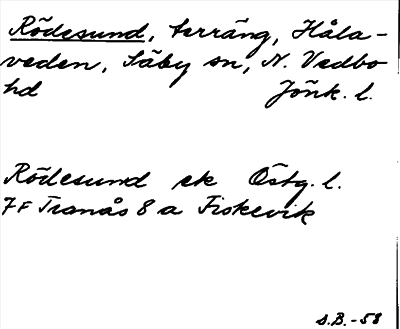 Rödesund, terräng, Håla-
veden, Säby sn, N. Vedbo
hd Jönk. l.
Rödesund ek Östg. l.
7F Tranås 8 a Fiskevik
S.B. -58